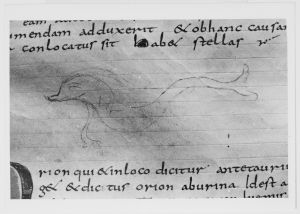 eam
mendam adduxerit & obhanc causam
conlocatus sit habet stellas
rion qui & inloco dicitur antetauri
ge & dictus orion aburina Idest a